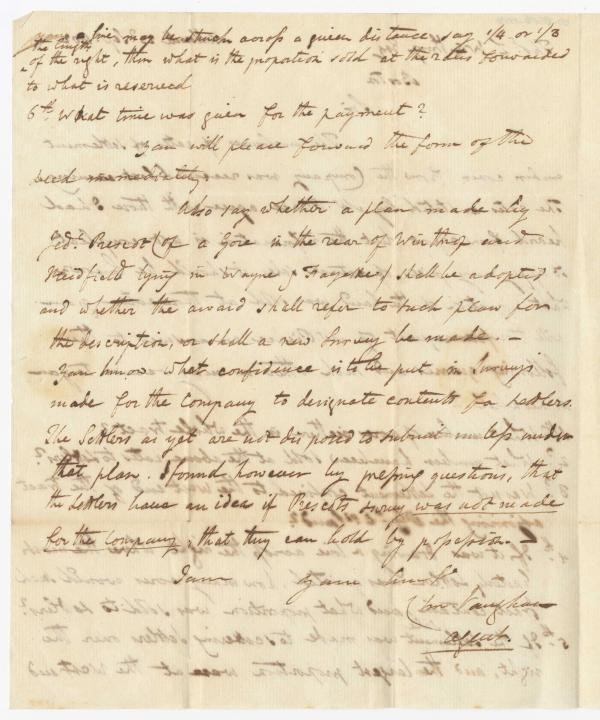 a line may be struck across a given distance say 1/4 or 1/3
the length
of the right, then what is the proportion sold at the rates forwarded
to what is reserved
6th What time was given for the payment?
You will please forward the form of the
deed immediately
Also say whether a plan made by
Jedh. Prescot (of a Gore in the rear of Winthrop and
Readfield lying in Wayne & Fayette) shall be adopted
and whether the award shall refer to such plan for
the description, or shall a new Survey be made. —
You know what confidence is to be put in Surveys
made for the Company to designate contents for Settlers.
The Settlers as yet are not disposed to submit unless under
that plan. I found however by pressing questions, that
the settlers have an idea if Prescots survey was not made
for the Company, that they can hold by possession. —
I am your
Vaughan
Agent.